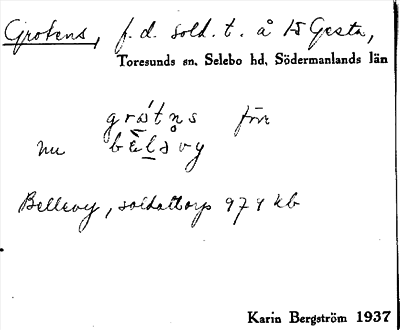 Grotens, f. d. sold. t. å Gesta,
Toresunds sn, Selebo hd, Södermanlands län
förr
nu
Bellevy, soldattorp 974 kb
Karin Bergström 1937